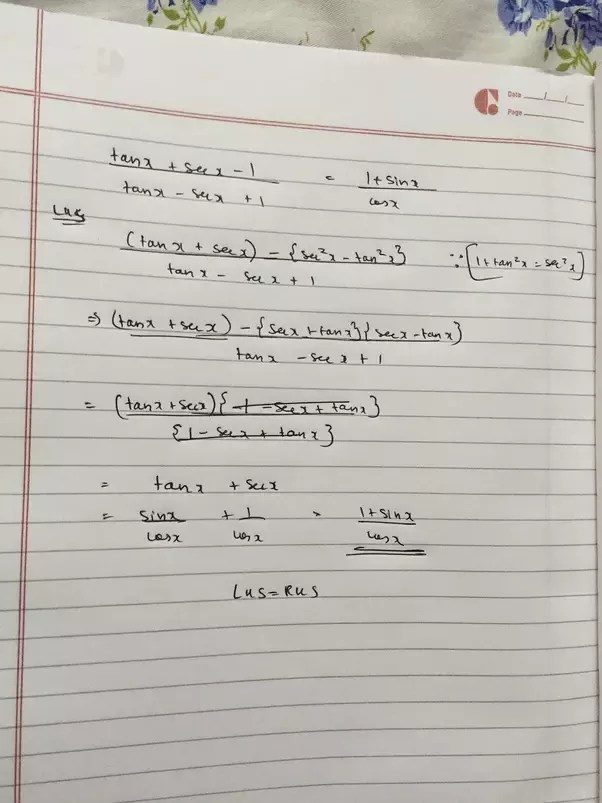 Date ___/___/___
Page
(tanx + secx - 1)/(tanx - secx + 1) = (1 + sinx)/cosx
LHS
((tanx + secx) - {sec²x - tan²x})/(tanx - secx + 1) ∵ [1 + tan²x = sec²x]
⇒ ((tanx + secx) - {secx + tanx}{secx - tanx})/(tanx - secx + 1)
= ((tanx + secx){1 - secx + tanx})/{1 - secx + tanx}
= tanx + secx
= sinx/cosx + 1/cosx = (1 + sinx)/cosx
LHS = RHS